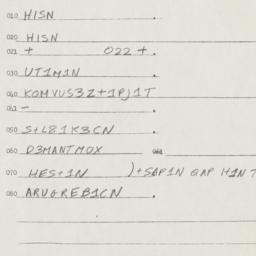 010 HISN .
020 HISN
021 + 022 + .
030 UT1M1N .
040 KOMVUS3Z+1PJ1T
041 - .
050 S+L81K3CN .
060 D3MANTMOX
070 HES+1N )+SAP1N QAP H1N T
080 ARUGREB1CN .